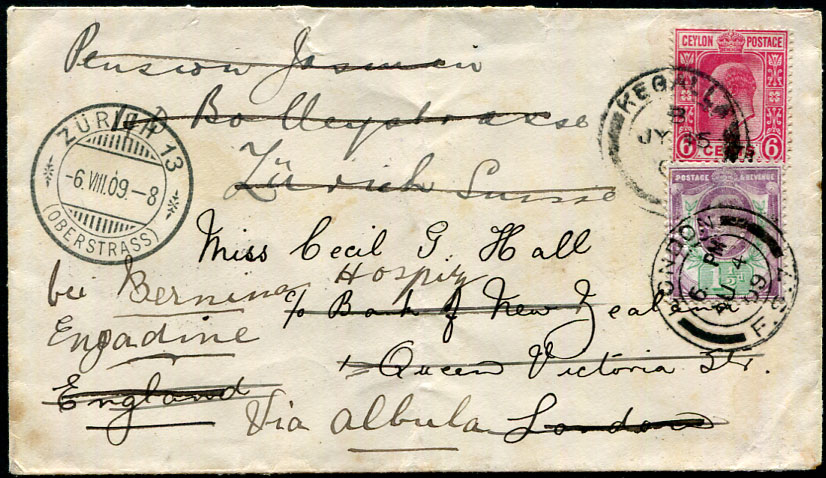 Pension Jasmin
CEYLON POSTAGE
6 CENTS 6
KEGALLA
B
JY 15
ZÜRICH 13
-6.VIII.09.-8
(OBERSTRASS)
Zürich Suisse
POSTAGE & REVENUE
1½d
LONDON F.S.
6 PM
AU 4
09
Miss Cecil G. Hall
bei Bernina Hospiz
c/o Bank of New Zealand
Engadine
1 Queen Victoria Str.
England
Via Albula London